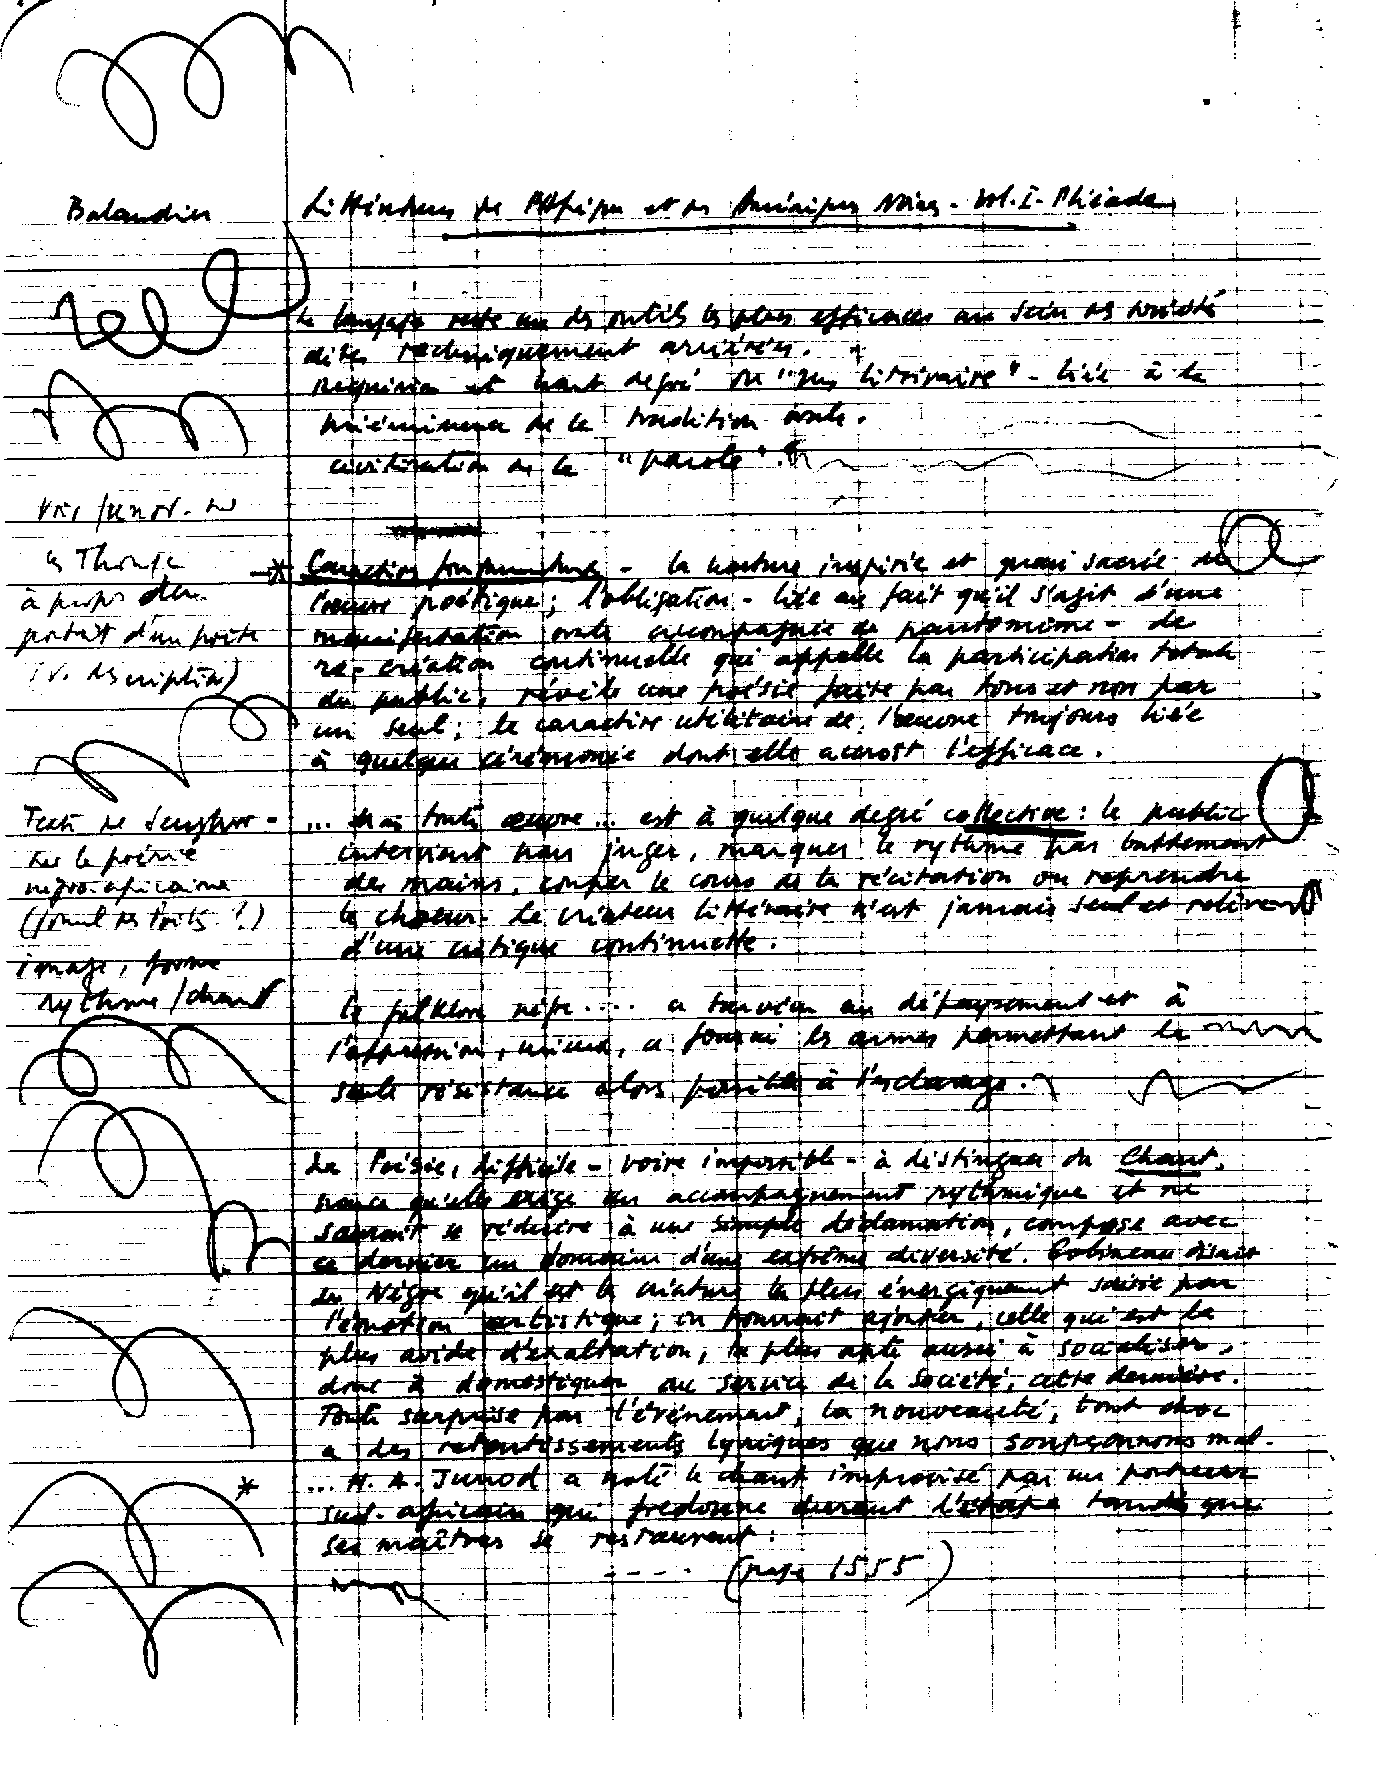 Balandier
Littératures de l'Afrique et des Amériques Noires - Vol. I - Pléiade
Le langage reste un des outils les plus efficaces au sein des sociétés
dites techniquement arriérées.
et haut degré du " littéraire" - liée à la
prééminence de la tradition orale.
civilisation de la "parole".
Voir Junod - sur
les Thonga
à propos d'un
portrait d'un poète
(v. description)
* Caractères fondamentaux - la nature inspirée et quasi sacrée de
l'oeuvre poétique ; l'obligation - liée au fait qu'il s'agit d'une
manifestation orale accompagnée de pantomime - de
re-création continuelle qui appelle la participation totale
du public, révèle une poésie faite par tous et non par
un seul ; le caractère utilitaire de l'oeuvre toujours liée
à quelque cérémonie dont elle accroît l'efficace.
Texte de Senghor -
sur la poésie
négro-africaine
image, forme
rythme / chant
... Mais toute oeuvre ... est à quelque degré collective : le public
intervient pour juger, marquer le rythme par battement
des mains, couper le cours de la récitation ou reprendre
le choeur. Le créateur littéraire n'est jamais seul et relève
d'une critique continuelle.
Le folklore nègre .... a survécu au dépaysement et à
l'oppression, mieux, a fourni les armes permettant la
seule résistance alors possible à l'esclavage.
La Poésie, difficile - voire impossible - à distinguer du Chant,
parce qu'elle exige un accompagnement rythmique et ne
saurait se réduire à une simple déclamation, compose avec
ce dernier un domaine d'une extrême diversité. Gobineau disait
du Nègre qu'il est la créature la plus énergiquement saisie par
l'émotion artistique ; on pourrait ajouter, celle qui est la
plus avide d'exaltation, la plus apte aussi à socialiser,
donc à domestiquer au service de la Société, cette dernière.
Toute surprise par l'événement, la nouveauté, tout choc
a des retentissements lyriques que nous soupçonnons mal.
* ... H. A. Junod a noté le chant improvisé par un porteur
sud-africain qui fredonne durant l'étape tandis que
ses maîtres se restaurent :
---- (page 1555)